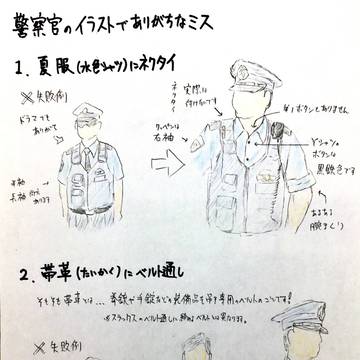 警察官のイラストでありがちなミス
1. 夏服(水色シャツ)にネクタイ
※失敗例
ドラマでも
ありがち
半袖
長袖
あります
ネクタイ
実際は
付けないです
ワッペンは
右袖
第1ボタンとありません
Yシャツの
ボタンは
黒銀色です
あるある
腕まくり
2. 帯革(たいかく)にベルト通し
そもそも帯革とは…拳銃や手錠などの装備品を吊す専用のベルトのことです!
※スラックスのベルト通しに締めるベルトとは異なります。
※失敗例